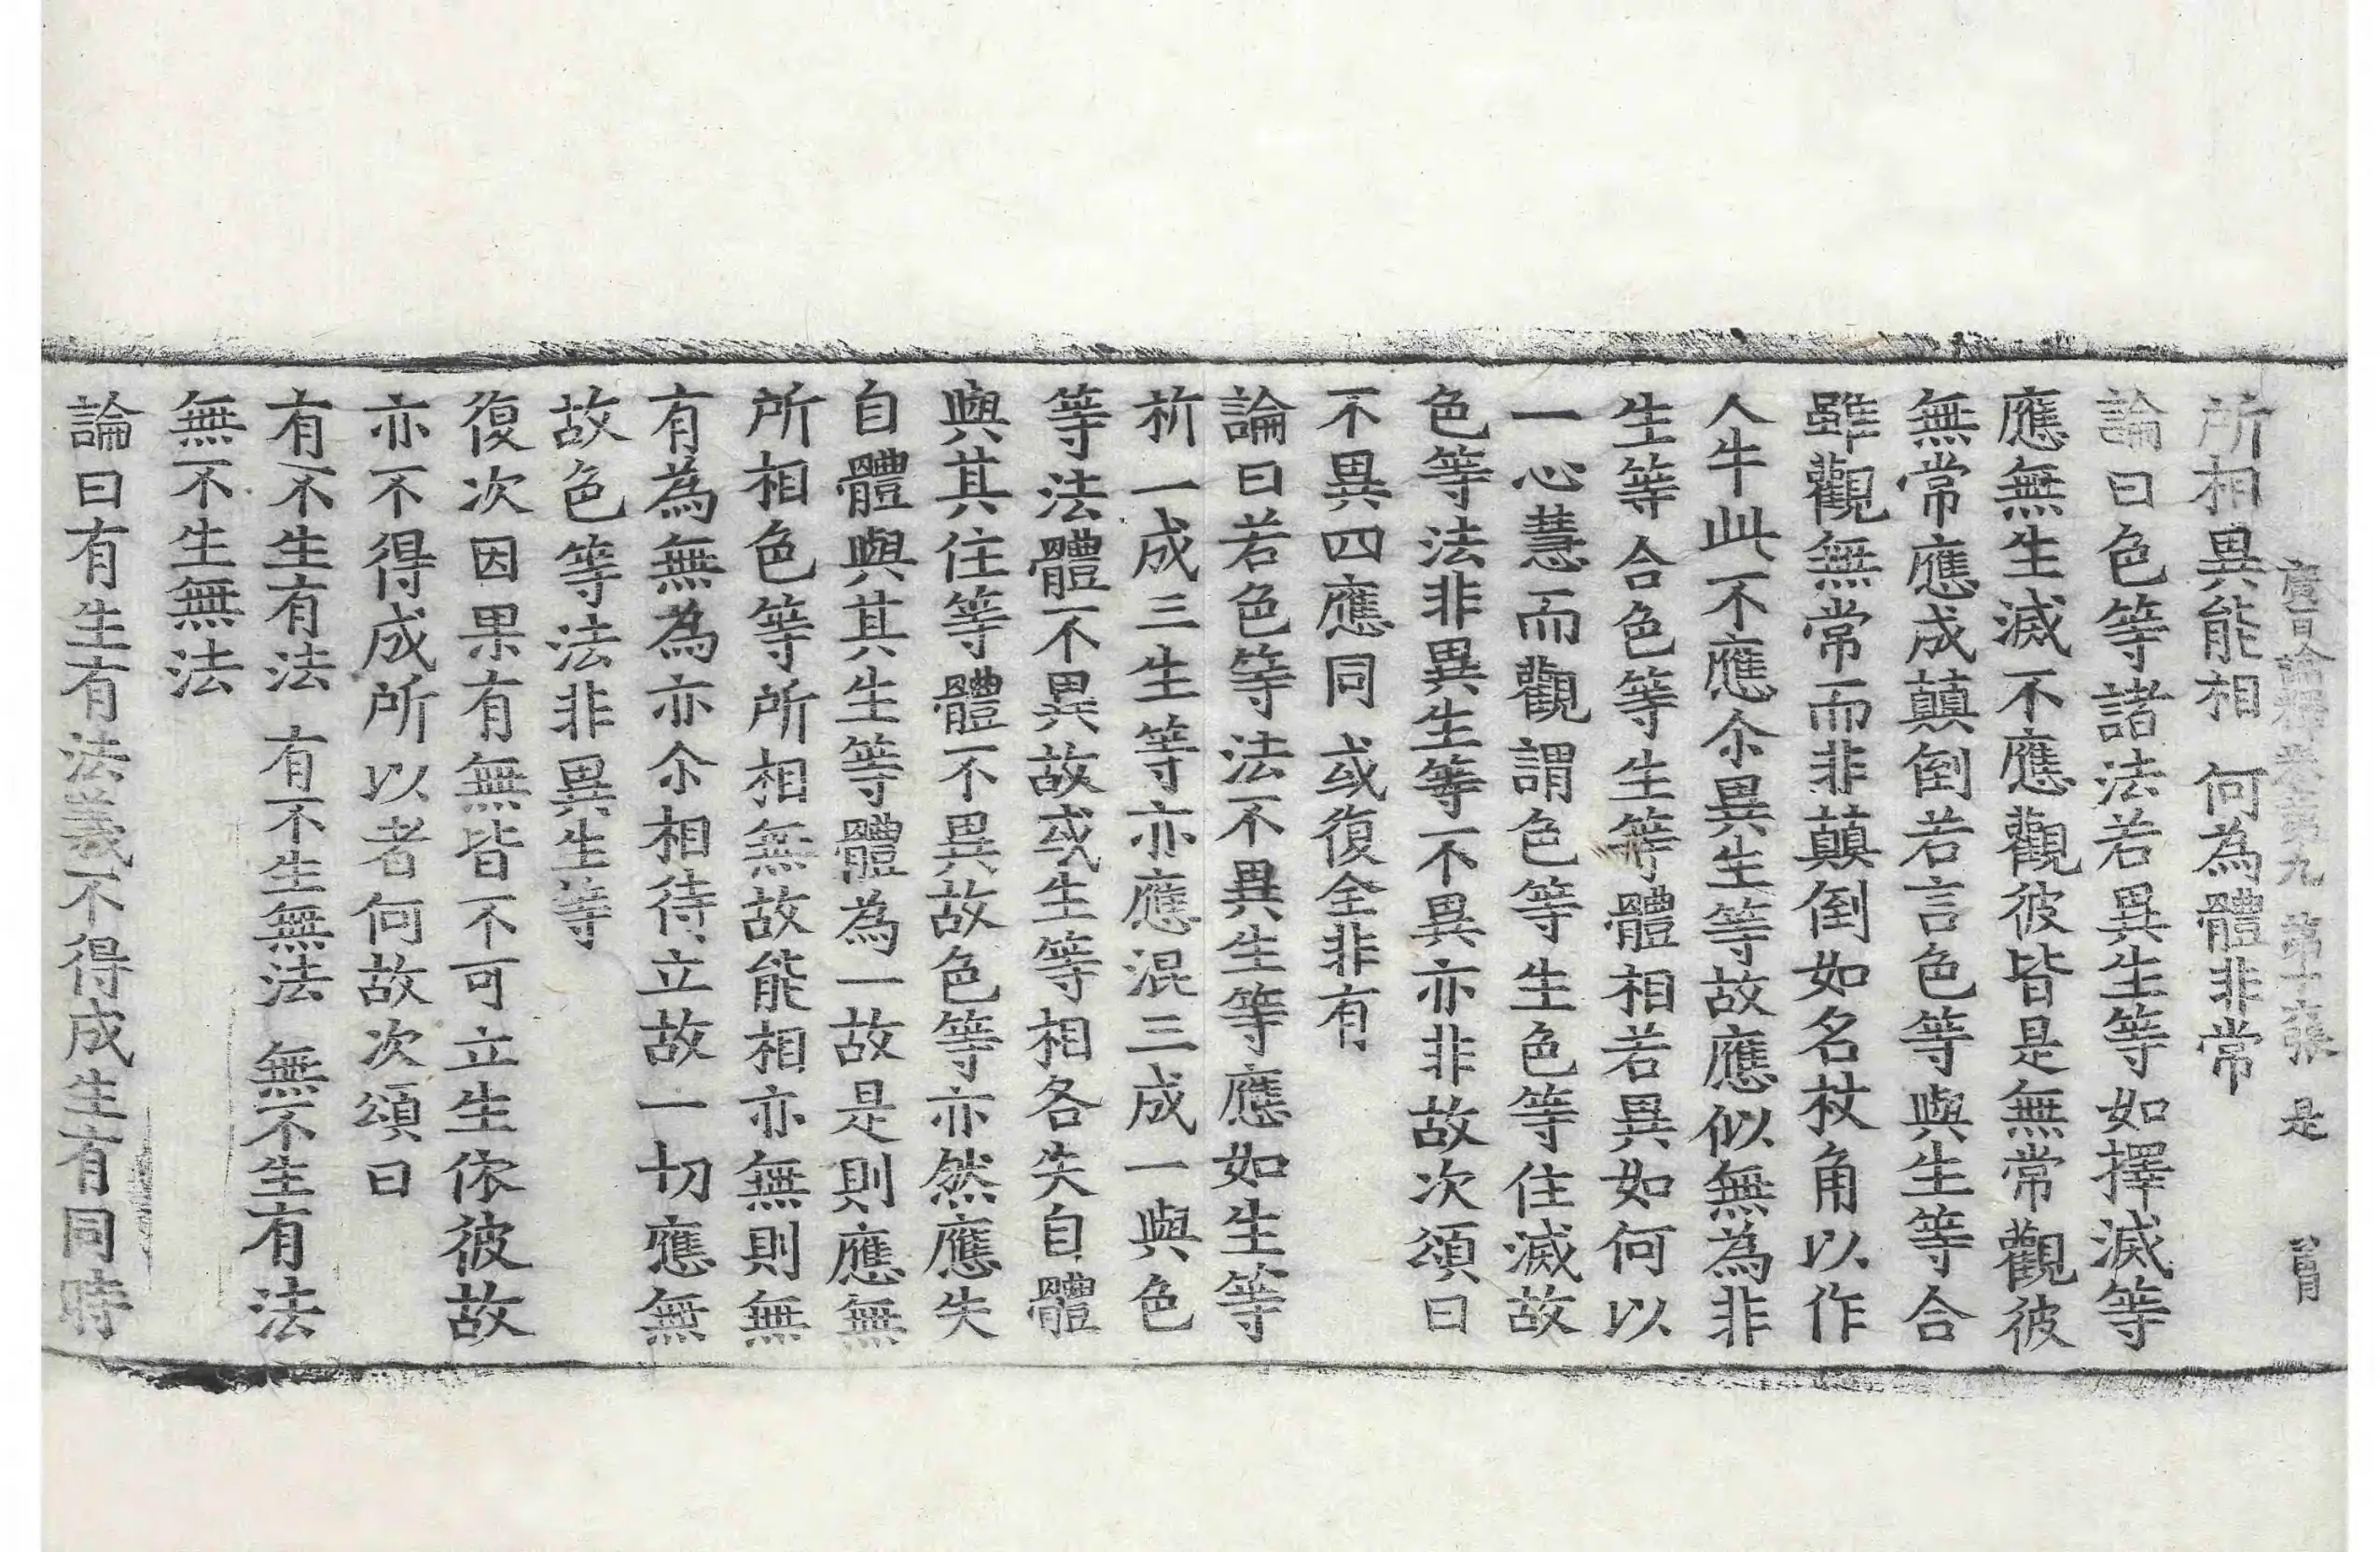 廣百論釋卷第九 第十六張 是
所相異能相 何為體非常
論曰色等諸法若異生等如擇滅等
應無生滅不應觀彼皆是無常觀彼
無常應成顛倒若言色等與生等合
雖觀無常而非顛倒如名杖角以作
人牛此不應尒異生等故應似無為非
生等合色等生等體相若異如何以
一心慧而觀謂色等生色等住滅故
色等法非異生等不異亦非故次頌曰
不異四應同 或復全非有
論曰若色等法不異生等應如生等
析一成三生等亦應混三成一與色
等法體不異故或生等相各失自體
與其住等體不異故色等亦然應失
自體與其生等體為一故是則應無
所相色等所相無故能相亦無則無
有為無為亦尒相待立故一切應無
故色等法非異生等
復次因果有無皆不可立生依彼故
亦不得成所以者何故次頌曰
有不生有法 有不生無法 無不生有法
無不生無法
論曰有生有法義不得成生有同時